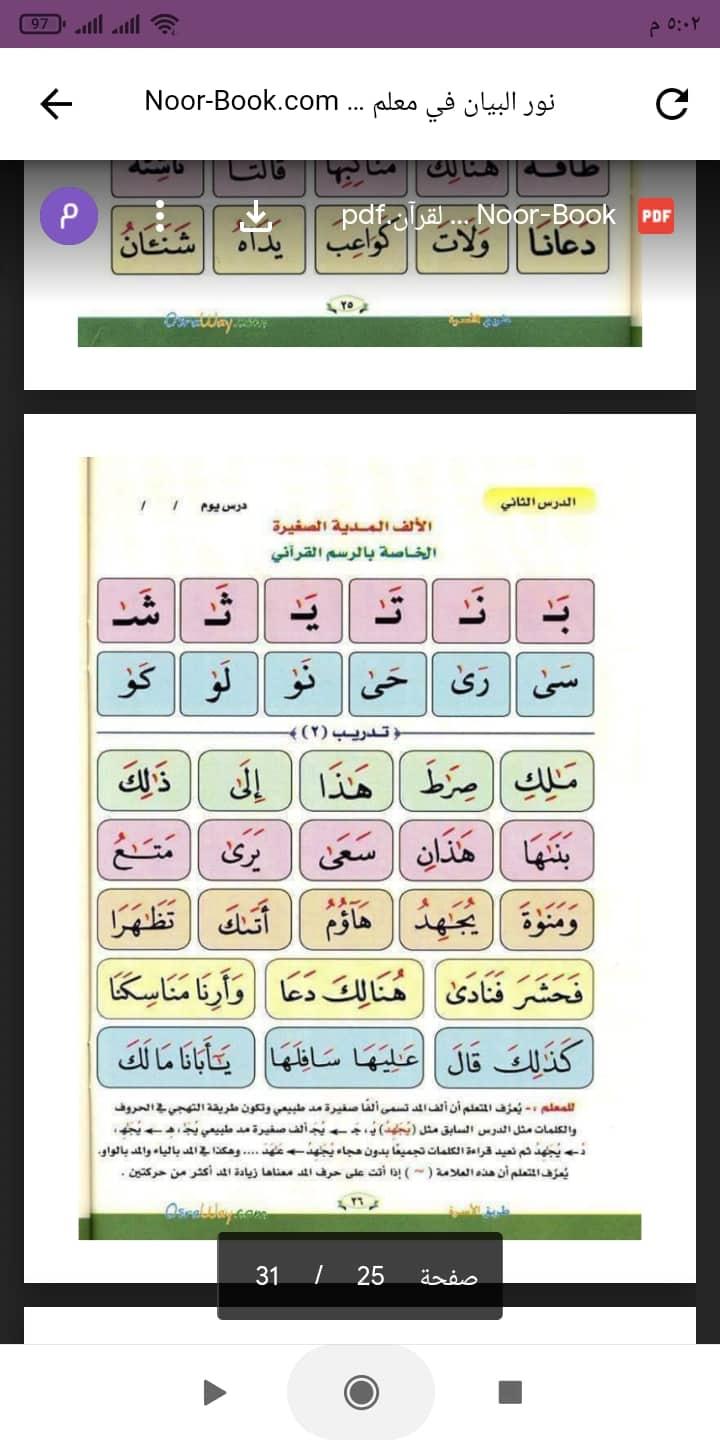 97 ٥:٠٢ م
نور البيان في معلم ... Noor-Book.com
هنالك قالتا
Noor-Book ... لقرآن.pdf PDF
م
دَعَانَا وَلَاتَ كَوَاعِبَ يَدَاهُ شَنَـَٔانُ
٢٥
طريق الأسرة OsraWay.com
الدرس الثاني درس يوم / /
الألف المدية الصغيرة
الخاصة بالرسم القرآني
بَـٰ نَـٰ تَـٰ يَـٰ ثَـٰ شَـٰ
سَىٰ رَىٰ حَىٰ نَوٰ لَوٰ كَوٰ
تدريب (٢)
مَـٰلِكِ صِرَٰطَ هَـٰذَا إِلَىٰ ذَٰلِكَ
بَنَىٰهَا هَـٰذَانِ سَعَىٰ يَرَىٰ مَتَـٰعُ
وَمَنَوٰةَ يُجَـٰهِدُ هَآؤُمُ أَتَىٰكَ تَظَـٰهَرَا
فَحَشَرَ فَنَادَىٰ هُنَالِكَ دَعَا وَأَرِنَا مَنَاسِكَنَا
كَذَٰلِكَ قَالَ عَـٰلِيَهَا سَافِلَهَا يَـٰٓأَبَانَا مَا لَكَ
للمعلم :- يُعرّف المتعلم أن ألف المد تسمى ألفًا صغيرة مد طبيعي وتكون طريقة التهجي في الحروف
والكلمات مثل الدرس السابق مثل (يُجَـٰهِدُ) يُ، جَـ ← يُجَ ألف صغيرة مد طبيعي يُجَـٰ، هِـ ← يُجَـٰهِ،
دُ ← يُجَـٰهِدُ ثم نعيد قراءة الكلمات تجميعًا بدون هجاء .... وهكذا في المد بالياء والمد بالواو.
يُعرّف المتعلم أن هذه العلامة ( ~ ) إذا أتت على حرف المد معناها زيادة المد أكثر من حركتين .
٢٦
طريق الأسرة OsraWay.com
صفحة 25 / 31